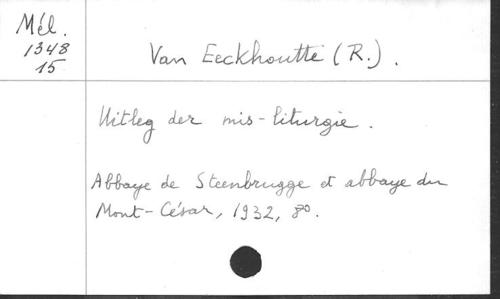 Mél.
1348
15
Van Eeckhoutte (R.).
Uitleg der mis-liturgie.
Abbaye de Steenbrugge et abbaye du
Mont-César, 1932, 8o.